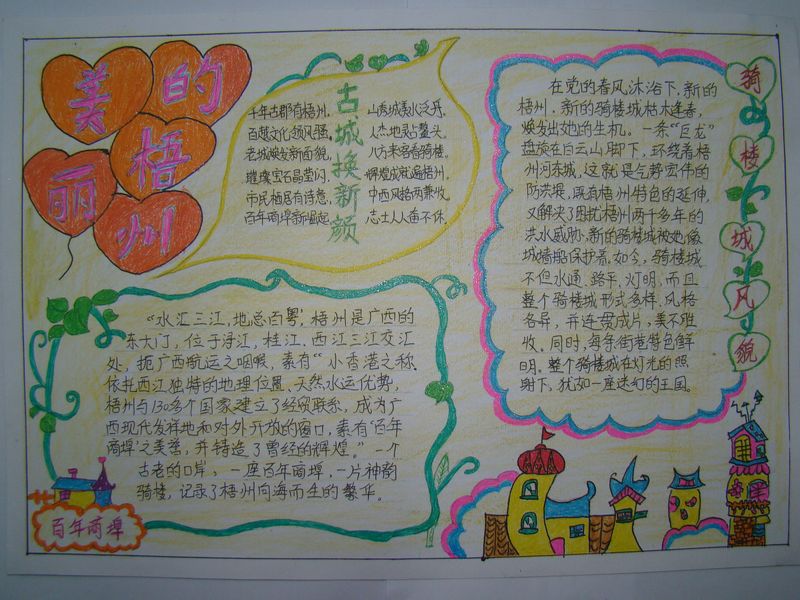 美的
丽梧
州
古城换新颜
千年古郡有梧州,
百越文化领风骚,
老城焕发新面貌,
璀璨宝石晶莹闪,
市民栖居有诗意,
百年商埠新崛起
山秀城美水泛舟,
人杰地灵占鳌头,
八方来客看骑楼,
辉煌成就遍梧州,
中西风格两兼收,
志士人人奋不休
骑楼城风貌
在党的春风沐浴下,新的
梧州、新的骑楼城枯木逢春,
焕发出她的生机。一条“巨龙”
盘旋在白云山脚下,环绕着梧
州河东城,这就是气势宏伟的
防洪堤,既有梧州特色的延伸,
又解决了困扰梧州两千多年的
洪水威胁,新的骑楼城被她像
城墙般保护着。如今,骑楼城
不但水通、路平、灯明,而且
整个骑楼城形式多样、风格
各异,并连贯成片,美不胜
收。同时,每条街巷特色鲜
明。整个骑楼城在灯光的照
耀下,犹如一座迷幻的王国。
“水汇三江,地总百粤”,梧州是广西的
东大门,位于浔江,桂江、西江三江交汇
处,扼广西航运之咽喉,素有“小香港之称
依托西江独特的地理位置、天然水运优势,
梧州与130多个国家建立了经贸联系,成为广
西现代发祥地和对外开放的窗口,素有“百年
商埠”之美蓥,并铸造了曾经的辉煌。”一个
古老的口岸,一座百年商埠,一片神韵
骑楼,记录了梧州向海而生的繁华。
百年商埠